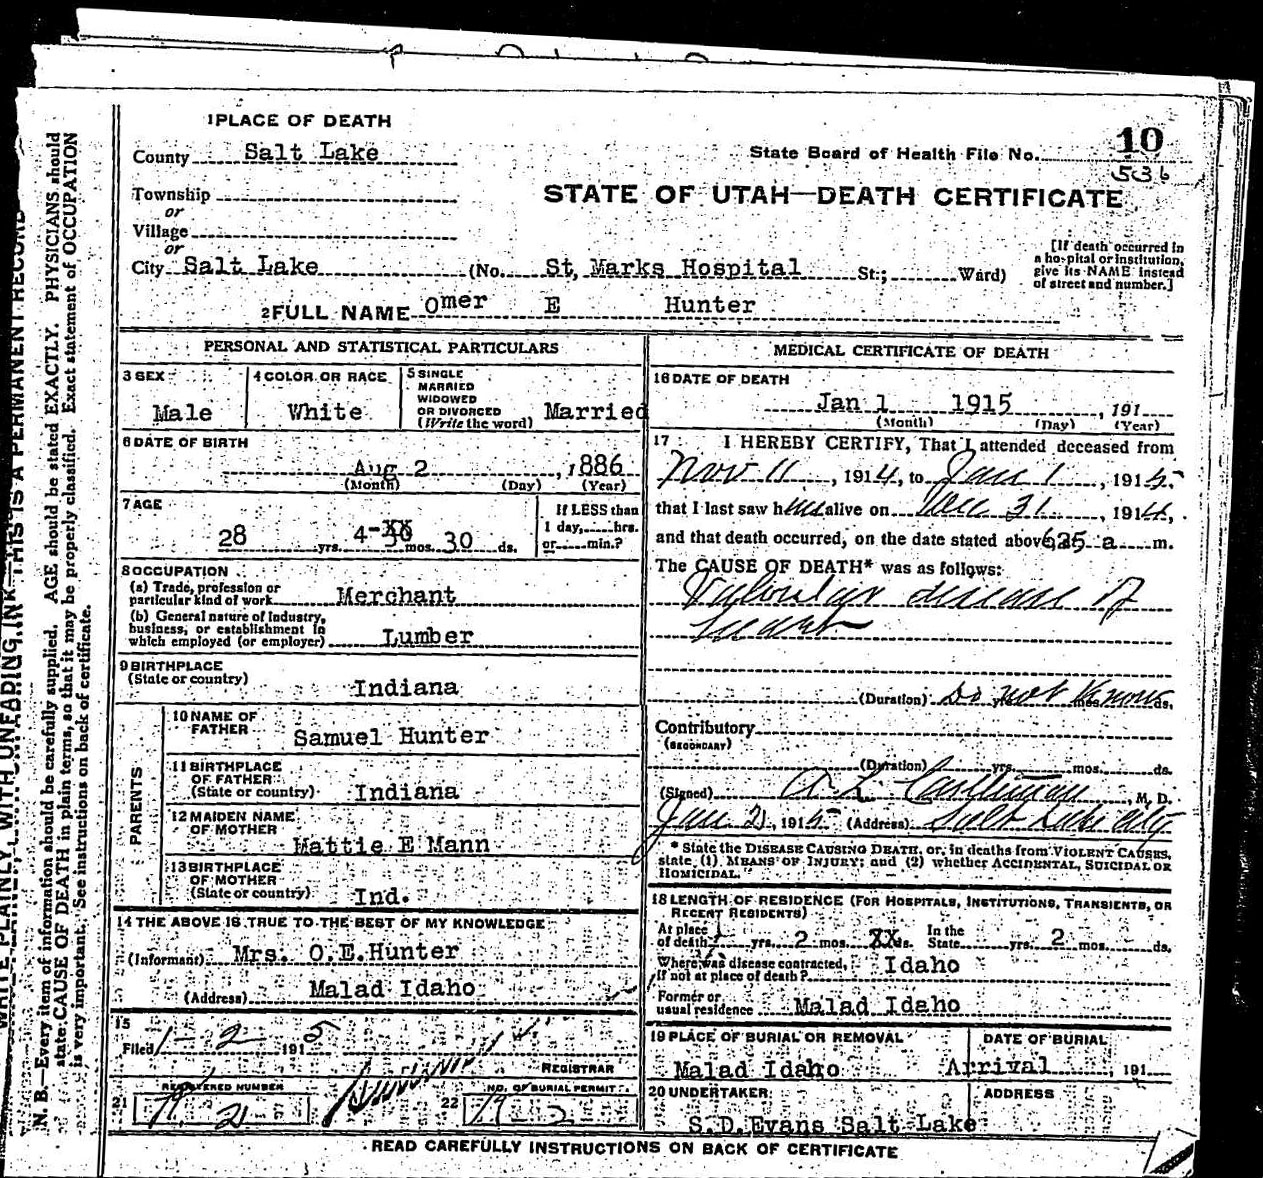 1 PLACE OF DEATH
County Salt Lake
Township
or
Village
or
City Salt Lake (No. St, Marks Hospital St.; Ward)
2 FULL NAME Omer E Hunter
State Board of Health File No. 10
536
STATE OF UTAH—DEATH CERTIFICATE
[If death occurred in
a hospital or institution,
give its NAME instead
of street and number.]
PERSONAL AND STATISTICAL PARTICULARS
3 SEX
Male
4 COLOR OR RACE
White
5 SINGLE
MARRIED
WIDOWED
OR DIVORCED
(Write the word) Married
6 DATE OF BIRTH
Aug 2, 1886
(Month) (Day) (Year)
7 AGE
28 yrs. 4 mos. 30 ds.
If LESS than
1 day, hrs.
or min.?
8 OCCUPATION
(a) Trade, profession or
particular kind of work Merchant
(b) General nature of Industry,
business, or establishment in
which employed (or employer) Lumber
9 BIRTHPLACE
(State or country)
Indiana
PARENTS
10 NAME OF
FATHER
Samuel Hunter
11 BIRTHPLACE
OF FATHER
(State or country) Indiana
12 MAIDEN NAME
OF MOTHER
Mattie E Mann
13 BIRTHPLACE
OF MOTHER
(State or country) Ind.
14 THE ABOVE IS TRUE TO THE BEST OF MY KNOWLEDGE
(Informant) Mrs. O.E.Hunter
(Address) Malad Idaho
15
Filed 1-2 1915
REGISTRAR
REGISTERED NUMBER
22 NO. OF BURIAL PERMIT
MEDICAL CERTIFICATE OF DEATH
16 DATE OF DEATH
Jan 1 1915, 191
(Month) (Day) (Year)
17 I HEREBY CERTIFY, That I attended deceased from
Nov 11, 1914, to Jan 1, 1915,
that I last saw him alive on Dec 31, 1914,
and that death occurred, on the date stated above, 625 a m.
The CAUSE OF DEATH* was as follows:
Valvular disease of
heart
(Duration) Do not know yrs. mos. ds.
Contributory
(SECONDARY)
(Duration) yrs. mos. ds.
(Signed) A L Castleman, M. D.
Jan 2, 1915 (Address) Salt Lake City
* State the DISEASE CAUSING DEATH, or, in deaths from VIOLENT CAUSES,
state (1) MEANS OF INJURY; and (2) whether ACCIDENTAL, SUICIDAL OR
HOMICIDAL.
18 LENGTH OF RESIDENCE (FOR HOSPITALS, INSTITUTIONS, TRANSIENTS, OR
RECENT RESIDENTS)
At place In the
of death yrs. 2 mos. XX ds. State yrs. 2 mos. ds.
Where was disease contracted,
If not at place of death? Idaho
Former or
usual residence Malad Idaho
19 PLACE OF BURIAL OR REMOVAL
Malad Idaho
DATE OF BURIAL
Arrival, 191
20 UNDERTAKER
ADDRESS
S.D.Evans Salt Lake
READ CAREFULLY INSTRUCTIONS ON BACK OF CERTIFICATE
THIS IS A PERMANENT RECORD
N. B.—Every item of information should be carefully supplied. AGE should be stated EXACTLY. PHYSICIANS should
state CAUSE OF DEATH in plain terms, so that it may be properly classified. Exact statement of OCCUPATION
is very important. See instructions on back of certificate.